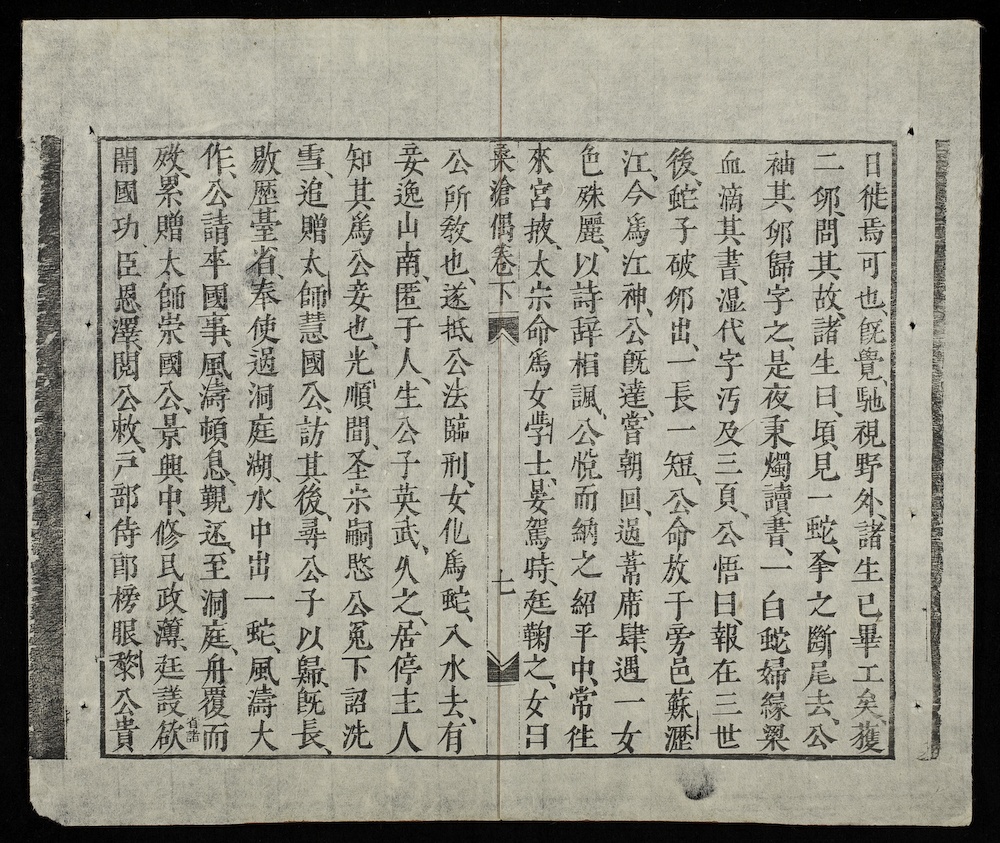 日徙焉可也、旣覺、馳視野外、諸生已畢工矣、獲
二卵、問其故、諸生曰、頃、見一蛇、夆之斷尾去、公
袖其卵歸字之、是夜秉燭讀書、一白蛇婦緣梁
血滴其書、湿代字汚及三頁、公悟曰、報在三世
後、蛇子破卵出、一長一短、公命放于旁邑蘇瀝
江、今爲江神、公旣達、嘗朝回、過菷席肆、遇一女
色殊麗、以詩辞相諷、公悅而納之、紹平中、常徃
來宮掖、太宗命爲女學士、晏駕時、廷鞠之、女曰
桑滄偶卷下
七
公所教也、遂抵公法、臨刑、女化爲蛇、入水去、有
妾逸山南、匿于人、生公子英武、乆之、居停主人
知其爲公妾也、光順間、圣宗嗣愍公寃、下詔洗
雪、追贈太師慧國公、訪其後、尋公子以歸、旣長、
敭歷臺省、奉使過洞庭湖、水中出一蛇、風濤大
作、公請卒國事、風濤頓息、覲还、至洞庭、舟覆而
殁、累贈太師崇國公、景興中、修民政薄、廷議欲
省諸
開國功臣恩澤、閱公敕、戸部侍郎榜眼黎公貴